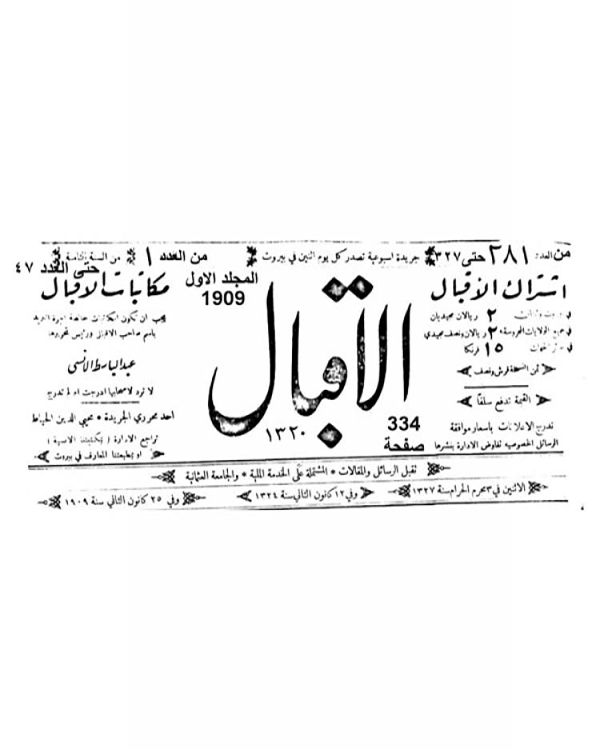 من العدد ٢٨١ حتى ٣٢٧
جريدة اسبوعية تصدر كل يوم اثنين في بيروت
من العدد ١
من السنة الثامنة
حتى العدد ٤٧
اشتراك الاقبال
في بيروت ولبنان ٢ ريالان مجيديان
في جميع الولايات المحروسة ٢ ريالان ونصف مجيدي
في سائر الجهات ١٥ فرنكا
ثمن النسخة قرش ونصف
القيمة تدفع سلفاً
تدرج الاعلانات باسعار موافقة
الرسائل الخصوصيه تفاوض الادارة بنشرها
المجلد الاول
1909
الاقبال
١٣٢٠
334
صفحة
مكاتبات الاقبال
يجب ان تكون المكاتبات خالصة اجرة البريد
باسم صاحب الاقبال ورئيس تحريرها
عبد الباسط الانسي
لا ترد لاصحابها ادرجت ام لم تدرج
احد محرري الجريدة * محيي الدين الخياط
تراجع الادارة ( بمكتبتنا الانسية )
او بمطبعتنا المعارف في بيروت
تقبل الرسائل والمقالات * المشتملة على الخدمة الملية * والجامعة العثمانية
الاثنين في ٣ محرم الحرام سنة ١٣٢٧
وفي ١٢ كانون الثاني سنة ١٣٢٤
وفي ٢٥ كانون الثاني سنة ١٩٠٩